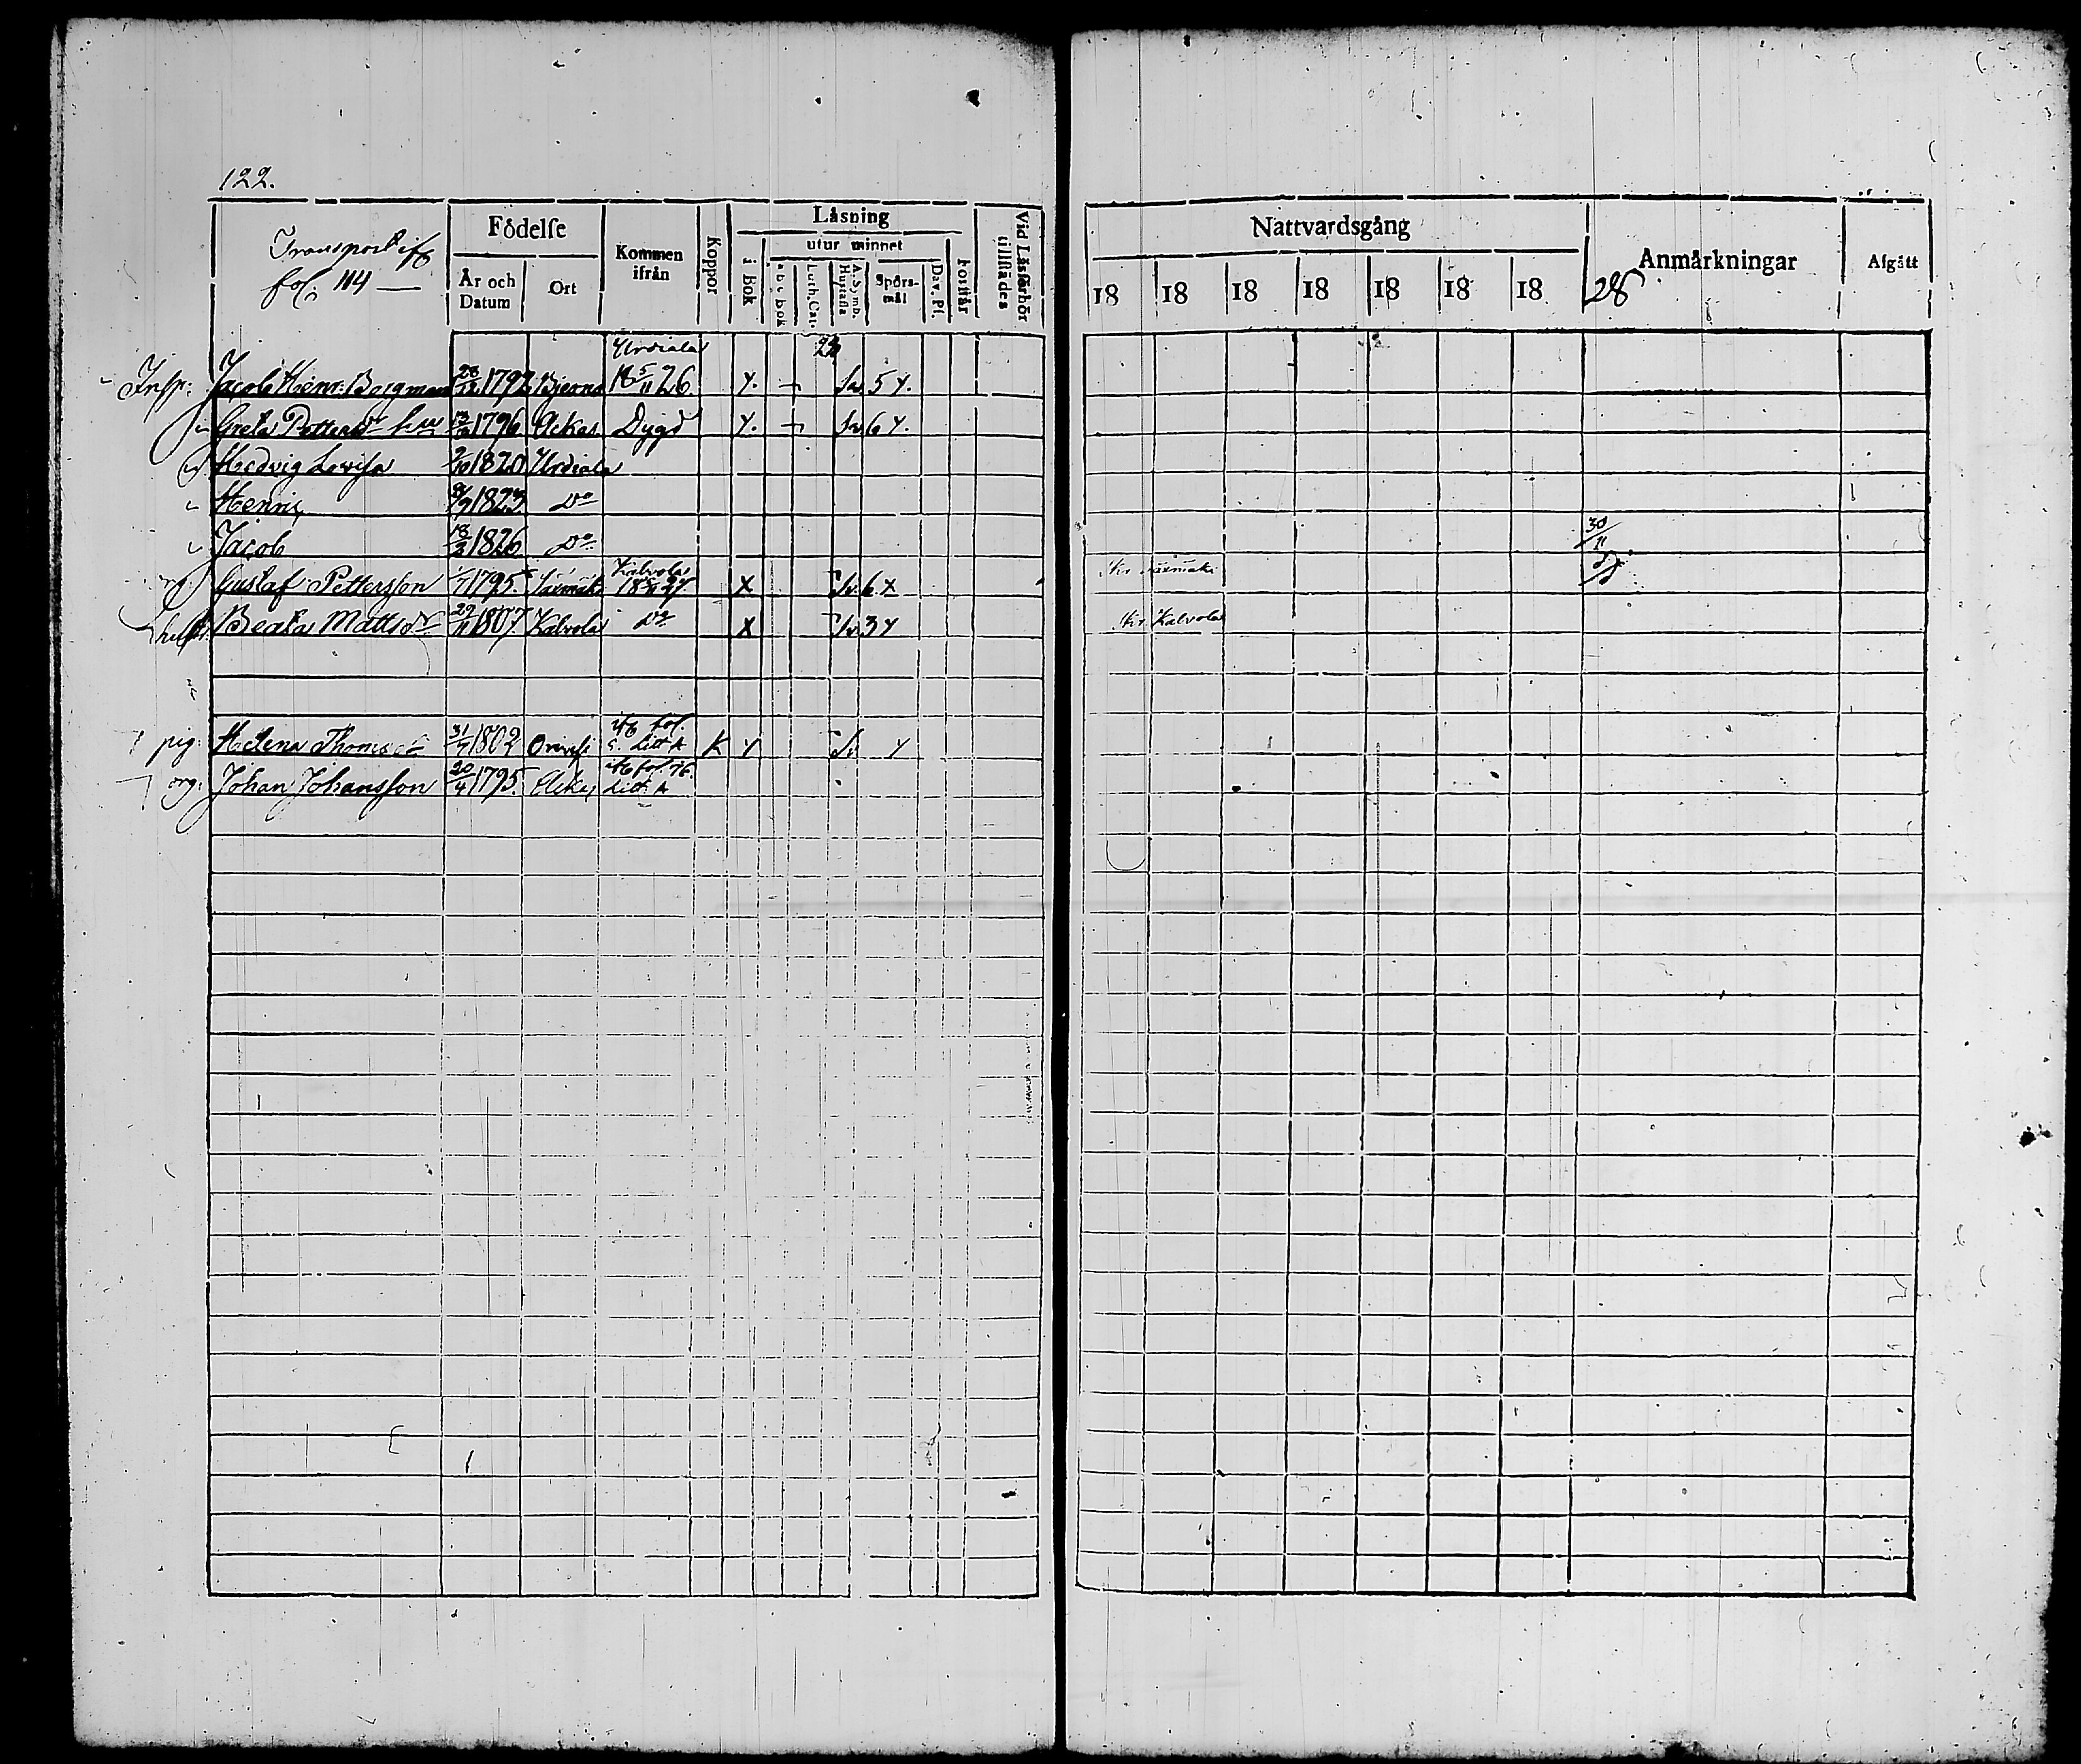 122.
Transport ifr fol: 114 —
Födelse
År och Datum
Ort
Kommen ifrån
Koppor
Låsning
i Bok
utur minnet
a b c bok
Luth. Cat.
A. Symb. Hustafla
Spörs-mål
Dav. Ps.
Förstår
Vid Läsförhör tillstädes
Nattvardsgång
18 18 18 18 18 18 18
28
Anmärkningar
Afgått
Urdiala
Insp: Jacob Henr: Borgman 28/12 1792 Bjerno 18 5/11 26. Y. Sv. 5 Y.
Greta Pettersdr hu 1796 Ackas Dygd Y. Sv 6 Y.
Hedvig Lovisa 2/10 1820 Urdiala
Henric 8/9 1823 Do
Jacob 18/3 1826 Do
30/11
Gustaf Pettersson 1795 Kalvola X Sv. 6 X
hust. Beata Mattsdr 29/11 1807. Kalvola Do X Sv 3 Y
Kalvola
pig: Helena Thomsdr 31/7 1802 Orivesi ifr fol. Litt A K Y Sv Y
org: Johan Johansson 20/4 1795. Ackas ifr fol. 76. Litt. A